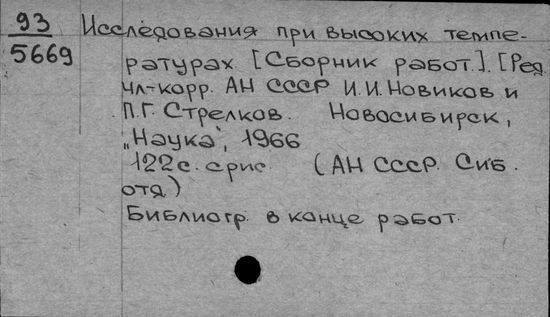 93
5669
Исследования при высоких темпе-
ратурах. [Сборник работ.]. [Ред
чл-корр. АН СССР И.И. Новиков и
П.Г. Стрелков. Новосибирск,
„Наука", 1966
122 с. срис (АН СССР. Сиб.
отд)
Библиогр. в конце работ.